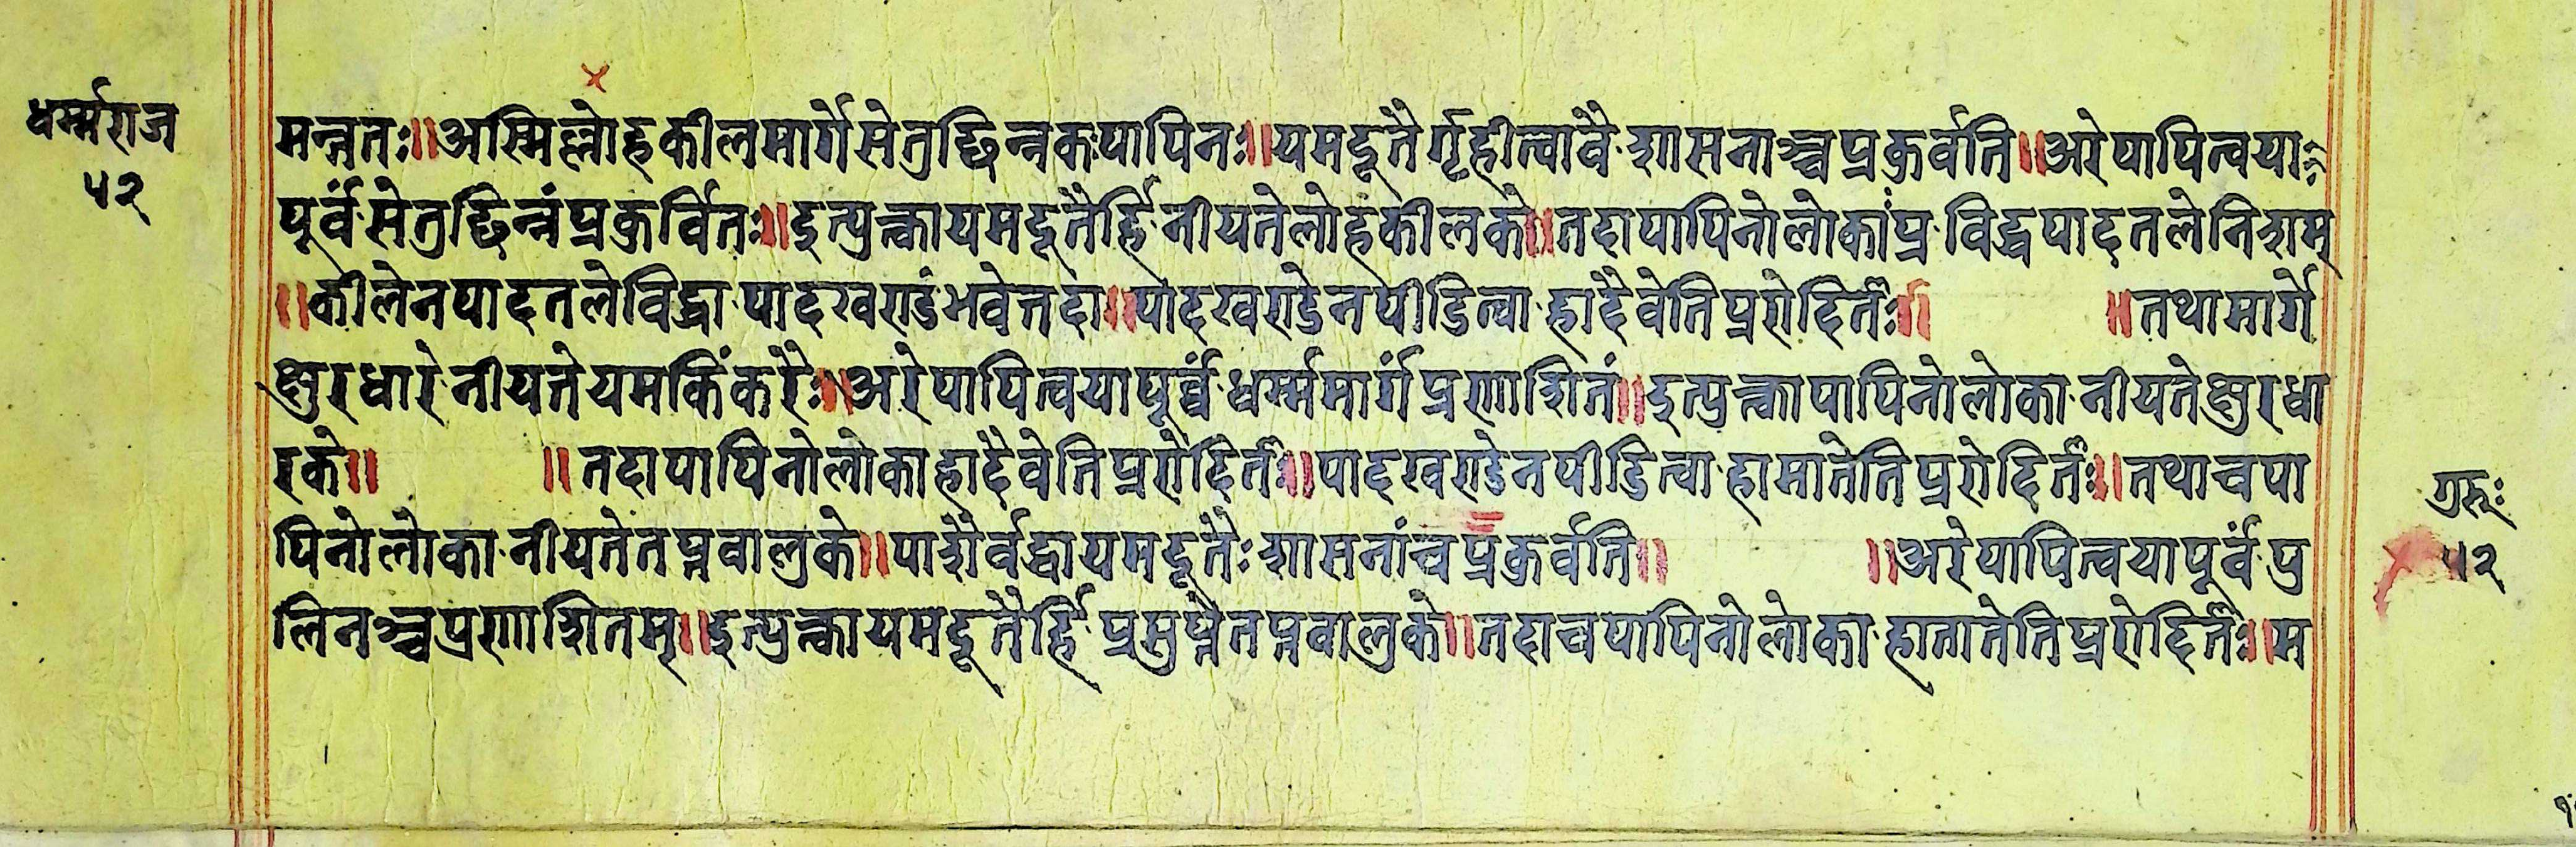 धर्म्मराज
५२
मन्नतः॥अस्मिल्लोहकीलमार्गेसेतुछिन्नकपापिनः॥यमदूतैर्गृहीत्वावैशासनाञ्च्वप्रकुर्वति॥अरेपापित्वया
पूर्वंसेतुछिन्नंप्रकुर्वितः॥इत्युत्क्वायमदूतैर्हिनीयतेलोहकीलके॥तदापापिनोलोकांप्रविद्धपादतलेनिशम्
॥कीलेनपादतलेविद्धापादखण्डंभवेत्तदा॥पादखण्डेनपीडित्वाहादैवेतिप्ररोदितैः॥ ॥तथामार्गे
क्षुरधारेनीयतेयमकिंकरैः॥अरेपापित्वयापूर्व्वंधर्म्ममार्गंप्रणाशितं॥इत्युत्क्वापापिनोलोकानीयतेक्षुरधा
रके॥ ॥तदापापिनोलोकाहादैवेतिप्ररोदितैः॥पादखण्डेनपीडित्वाहामातेतिप्ररोदितैः॥तथाचपा
पिनोलोकानीयतेतप्तवालुके॥पाशैर्वद्धायमदूतैःशासनांचप्रकुर्वति॥ ॥अरेपापित्वयापूर्वंपु
लिनञ्च्वप्रणाशितम्॥इत्युत्क्वायमदूतैर्हिप्रमुप्तैतप्तवालुके॥तदाचपापिनोलोकाहातातेतिप्ररोदितैः॥म
गुरुः
५२